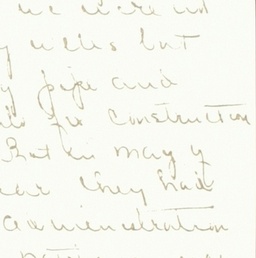 we were not
wells but
pipe and
for construction
But in May of
they had
administration